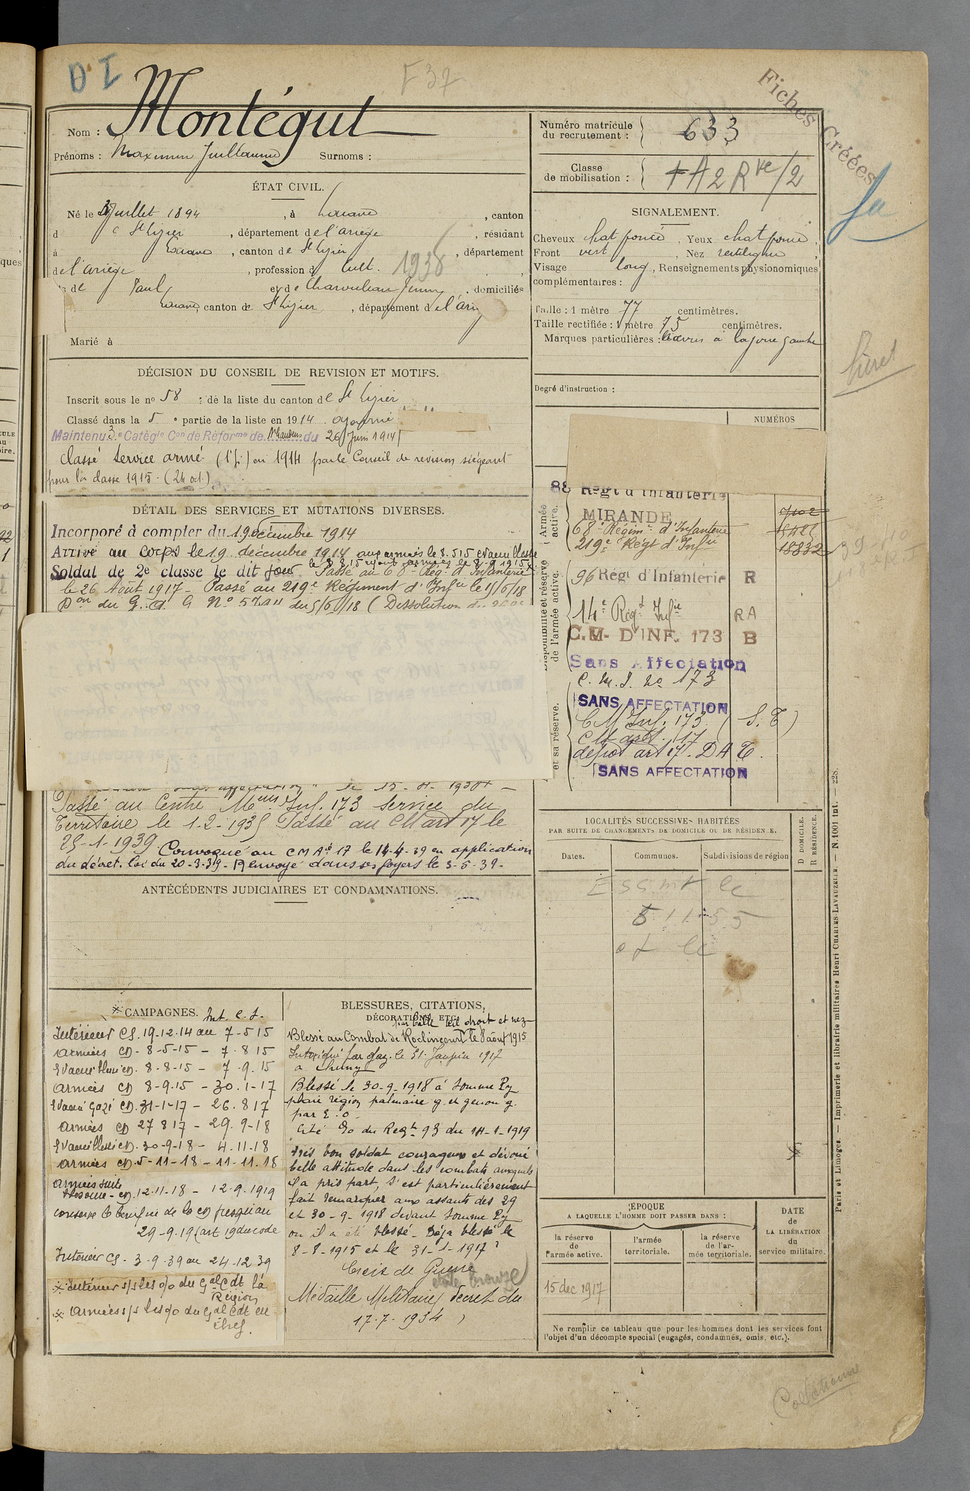 D I
F 37
Fiches Créées
Nom : Montégut
Prénoms : Maximin Guillaume Surnoms :
Numéro matricule du recrutement : 633
Classe de mobilisation : + A 2 Rve/2
ÉTAT CIVIL.
Né le 3 Juillet 1894, à , canton
d e St Lizier, département de l'ariège, résidant
à , canton de St Lizier, département
de l'ariège, profession d cult. 1936
de Paul et de , domiciliés
, canton de St Lizier, département de l'ari
Marié à
SIGNALEMENT.
Cheveux chat foncé, Yeux chat foncé,
Front vert, Nez rectiligne,
Visage long, Renseignements physionomiques
complémentaires :
Taille : 1 mètre 77 centimètres.
Taille rectifiée : 1 mètre 75 centimètres.
Marques particulières : à la joue gauche
Degré d'instruction :
DÉCISION DU CONSEIL DE REVISION ET MOTIFS.
Inscrit sous le no 58 de la liste du canton de St Lizier
Classé dans la 5e partie de la liste en 1914 ajourné
Maintenu 3e Catégie Con de Réforme de du 26 Juin 1915
Classé Service armé (1 p.) en 1914 par le Conseil de revision siégeant
pour la classe 1915 (24 oct.)
DÉTAIL DES SERVICES ET MUTATIONS DIVERSES.
Incorporé à compter du 19 décembre 1914
Arrivé au Corps le 19 décembre 1914 aux armées le 8.5.15 évacué blessé
le 8.8.15 aux armées le 8.9.15
Soldat de 2e classe le dit jour. Passé au 68e Rég. d'Infanterie
le 26 Août 1917. Passé au 219e Régiment d'Infie le 1/6/18
Don du G. Q. G No 57 a" du 5/6/18 (Dissolution du 268e
le 15. 11. 1934
Passé au Centre Mous Inf. 173 Service du
Territoire le 1-2-1935 Passé au CM art 17 le
25-1-1939 Convoqué au CM At 17 le 14-4-39 en application
du décret. loi du 20-3-39. Renvoyé dans ses foyers le 3-6-39.
NUMÉROS
Armée active.
Disponibilité et réserve de l'armée active.
et sa réserve.
88 Régt d'Infanterie
MIRANDE
68e Régim. d'Infanterie
219e Régt d'Infie 15832
96 Régt d'Infanterie R
14e Régt Infie RA
C.M. D'INF. 173 B
Sans Affectation
C. M. I. no 173
SANS AFFECTATION
CM Inf. 173 (S.T)
CM art. 17
dépot art 17. D A T.
SANS AFFECTATION
LOCALITÉS SUCCESSIVES HABITÉES
PAR SUITE DE CHANGEMENTS DE DOMICILE OU DE RÉSIDENCE.
Dates. Communes. Subdivisions de région
D DOMICILE.
R RÉSIDENCE.
le
5 11-55
et le
ANTÉCÉDENTS JUDICIAIRES ET CONDAMNATIONS.
* CAMPAGNES.
Intérieur CS. 19-12-14 au 7-5-15
Armées CD - 8-5-15 - 7-8 15
Evacué blessé CD - 8-8-15 - 7.9.15
armées CD 8-9-15 - 30.1-17
Evacué Gazé CD. 31-1-17 - 26.8 17
armées CD 27 8 17 - 29.9-18
Evacué blessé CD. 30-9-18 - 4.11.18
armées CD 5-11-18 - 11-11-18
armées sans
CD. 12.11.18 - 12.9.1919
conserve le bénéfice de la CD jusqu'au
29-9-19 (art 19 du code
Intérieur CS. 3-9.39 au 24-12.39
* Intérieur s/s les o/o du Gal Cdt la
Région
* Armées s/s les o/o du Gal Cdt en
chef.
BLESSURES, CITATIONS,
DÉCORATIONS, ETC.
par balle œil droit et nez
Blessé au Combat de Roclincourt le 8 août 1915
Intoxiqué par gaz le 31 Janvier 1917
à
Blessé le 30-9-1918 à Somme Py
plaie région palmaire g. et genou g.
par E.O.
Cité Oo du Regt 93 du 14-1-1919
très bon soldat courageux et dévoué
belle attitude dans les combats auxquels
il a pris part, s'est particulièrement
fait remarquer aux assauts des 29
et 30-9-1918 devant Somme Py
où il a été blessé. Déja blessé le
8-8-1915 et le 31-1-1917
Croix de Guerre
étoile bronze
Médaille Militaire (décret du
17.7.1934)
ÉPOQUE
A LAQUELLE L'HOMME DOIT PASSER DANS :
la réserve de l'armée active.
l'armée territoriale.
la réserve de l'armée territoriale.
DATE DE LA LIBÉRATION du service militaire.
15 dec 1917
Ne remplir ce tableau que pour les hommes dont les services font
l'objet d'un décompte spécial (engagés, condamnés, omis, etc.).
Paris et Limoges. — Imprimerie et librairie militaires Henri CHARLES-LAVAUZELLE. — N. 1001 int. — 228.